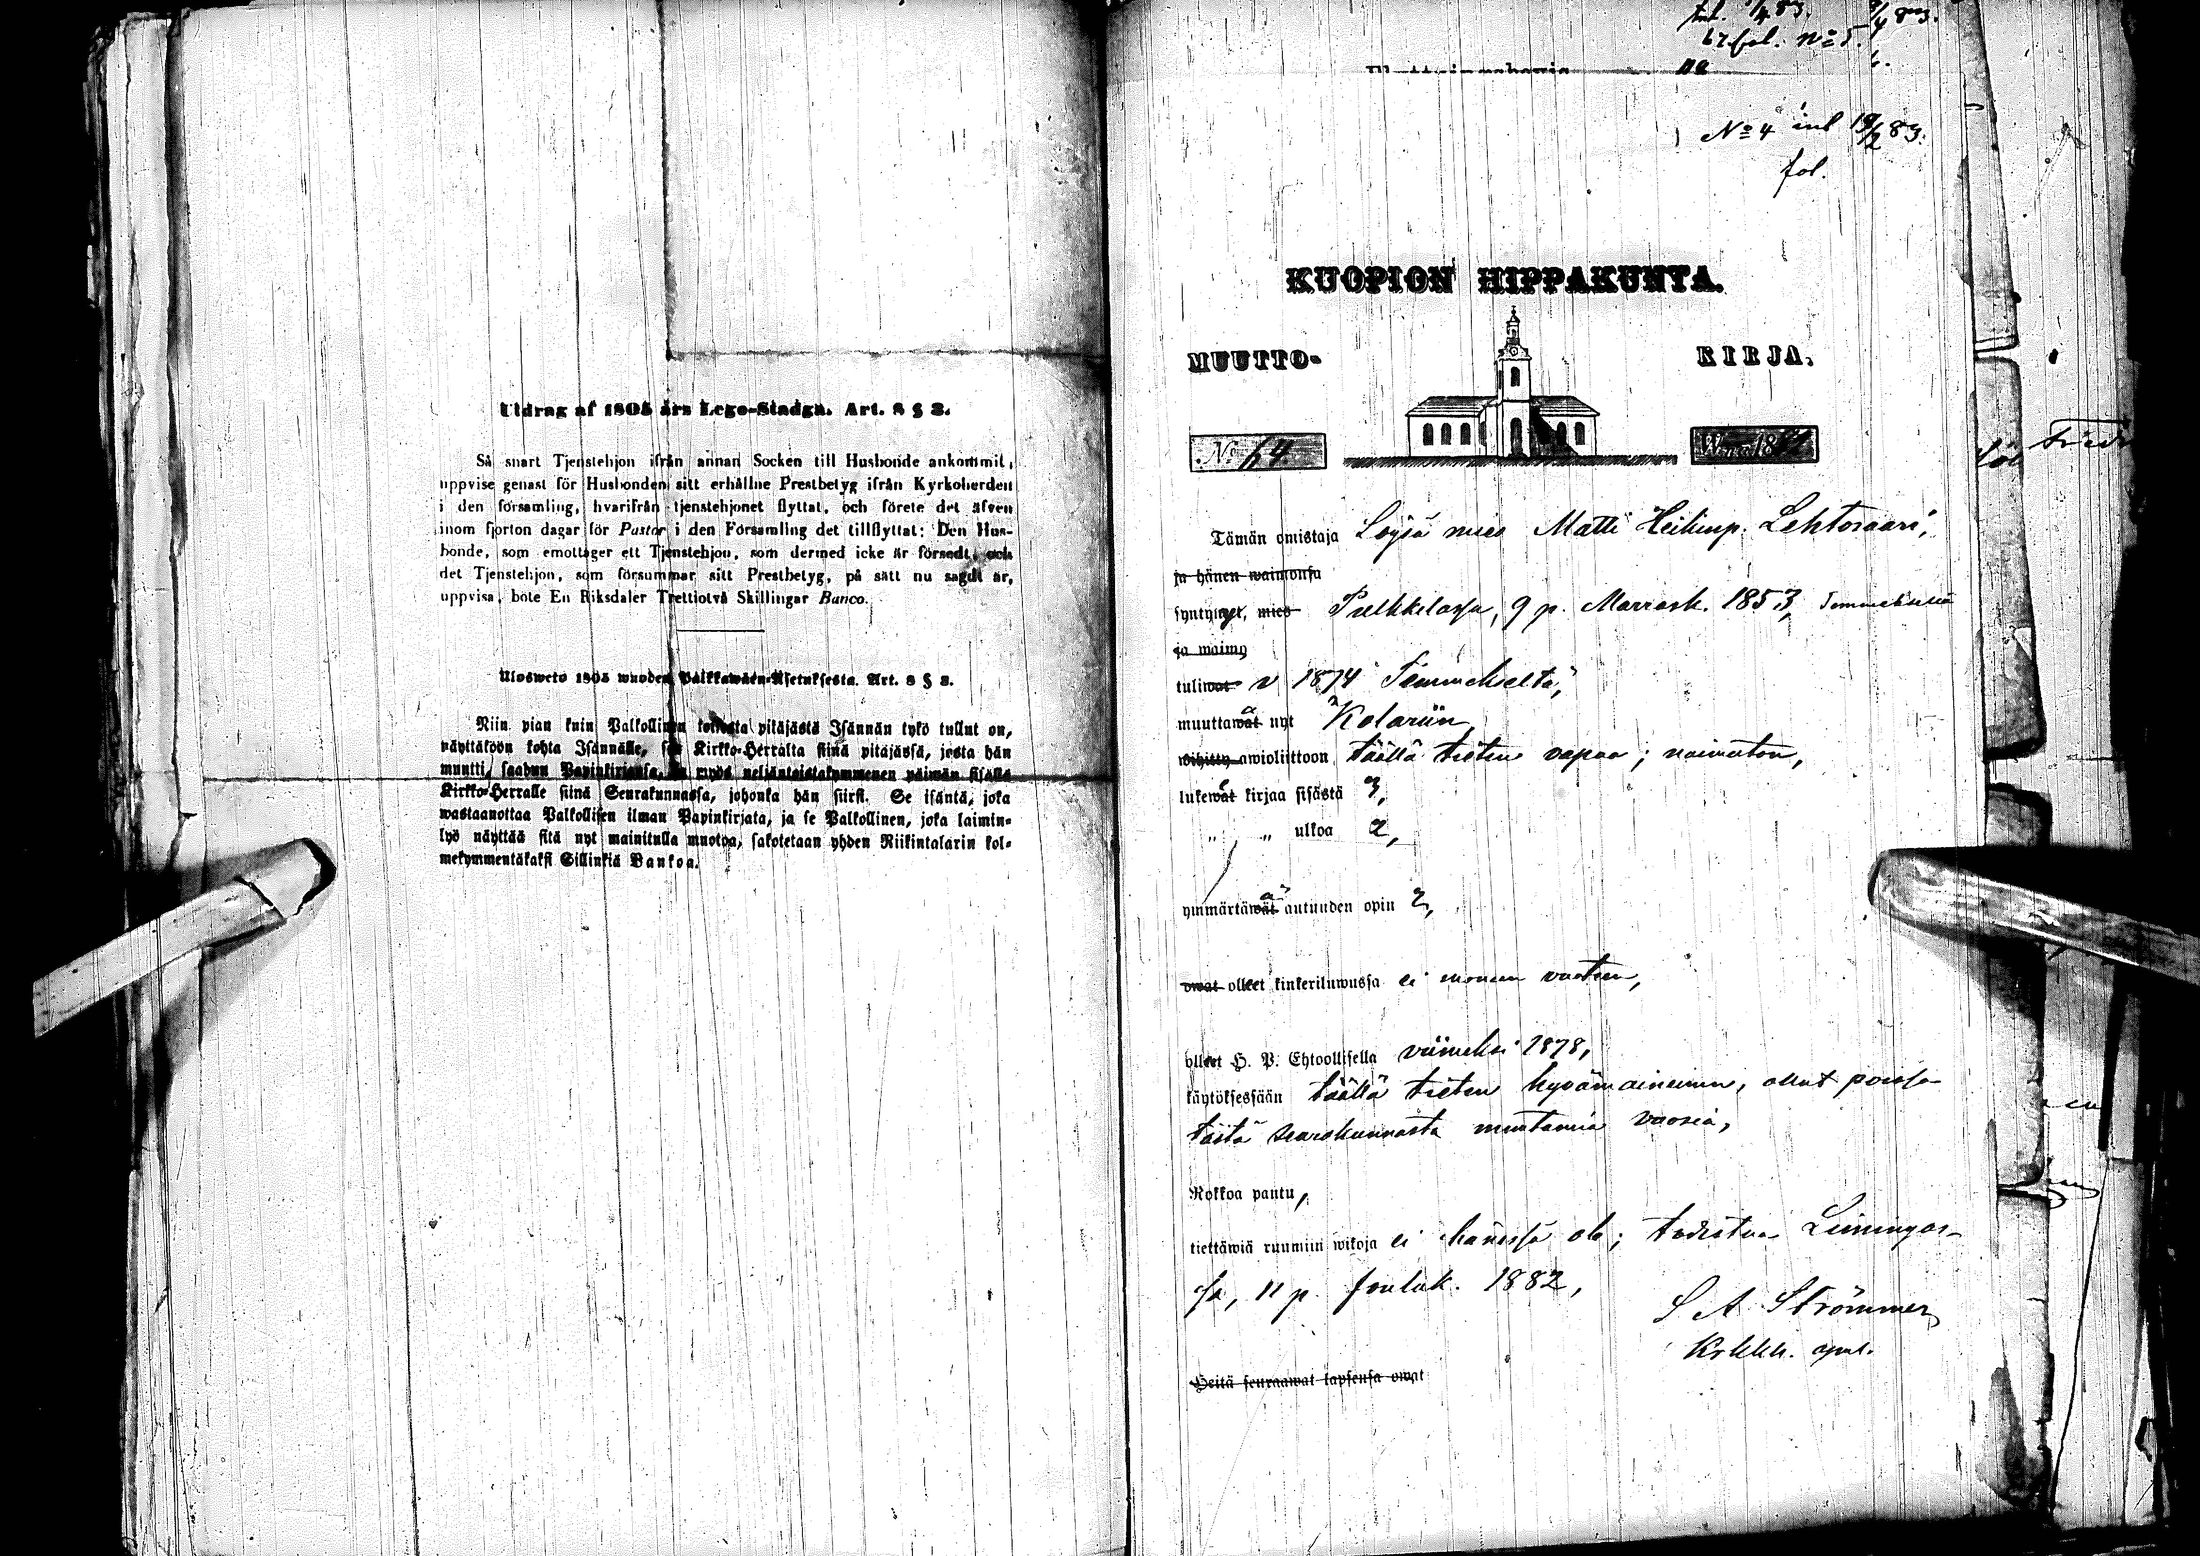 Utdrag af 1805 års Lego-Stadga. Art. 8 § 3.
Så snart Tjenstehjon ifrån annan Socken till Husbonde ankommit,
uppvise genast för Husbonden sitt erhållne Prestbetyg ifrån Kyrkoherden
i den församling, hvarifrån tjenstehjonet flyttat, och förete det äfven
inom fjorton dagar för Pastor i den Församling det tillflyttat: Den Hus-
bonde, som emottager ett Tjenstehjon, som dermed icke är försedt, och
det Tjenstehjon, som försummar sitt Prestbetyg, på sätt nu sagdt är,
uppvisa, böte En Riksdaler Trettiotvå Skillingar Banco.
Ulosweto 1805 wuoden Palkkawäen-Asetuksesta. Art. 8 § 3.
Niin pian kuin Palkollinen toisesta pitäjästä Isännän tykö tullut on,
näyttäköön kohta Isännälle, sen Kirkko-Herralta siinä pitäjässä, josta hän
muutti, saadun Papinkirjansa, ja myös neljäntoistakymmenen päiwän sisällä
Kirkko-Herralle siinä Seurakunnassa, johonka hän siirsi. Se isäntä, joka
wastaanottaa Palkollisen ilman Papinkirjata, ja se Palkollinen, joka laimin-
lyö näyttää sitä nyt mainitulla muotoa, sakotetaan yhden Riikintalarin kol-
mekymmentäkaksi Sillinkiä Bankoa.
67 fol. No 5.
No 4 inl 19/2 83.
fol.
KUOPION HIPPAKUNTA.
MUUTTO- KIRJA.
No 64. Wuonna 1882
Tämän omistaja Loysä mies Matti Heikinp. Lehtosaari,
ja hänen waimonsa
syntynyt, mies Pulkkilassa, 9 p. Marrask. 1853,
ja waimo
tuliwat v 1874 Temmekseltä,
muuttawat nyt Kolariin
wihitty awioliittoon täällä tieten vapaa; naimaton,
lukewat kirjaa sisästä 3,
„ „ ulkoa 2,
ymmärtäwät autuuden opin 2,
owat olleet kinkeriluwussa ei moneen vuoteen,
olleet H. P. Ehtoollisella viimeksi 1878,
käytöksessään täällä tieten hyvämaineinen, ollut poissa
tästä seurakunnasta muutamia vuosia,
Rokkoa pantu,
tiettäwiä ruumiin wikoja ei hänessä ole; todistaa Liimingos-
sa, 11 p. Jouluk. 1882,
S A Strömmer
Krkkh. apul.
Heitä seuraawat lapsensa owat